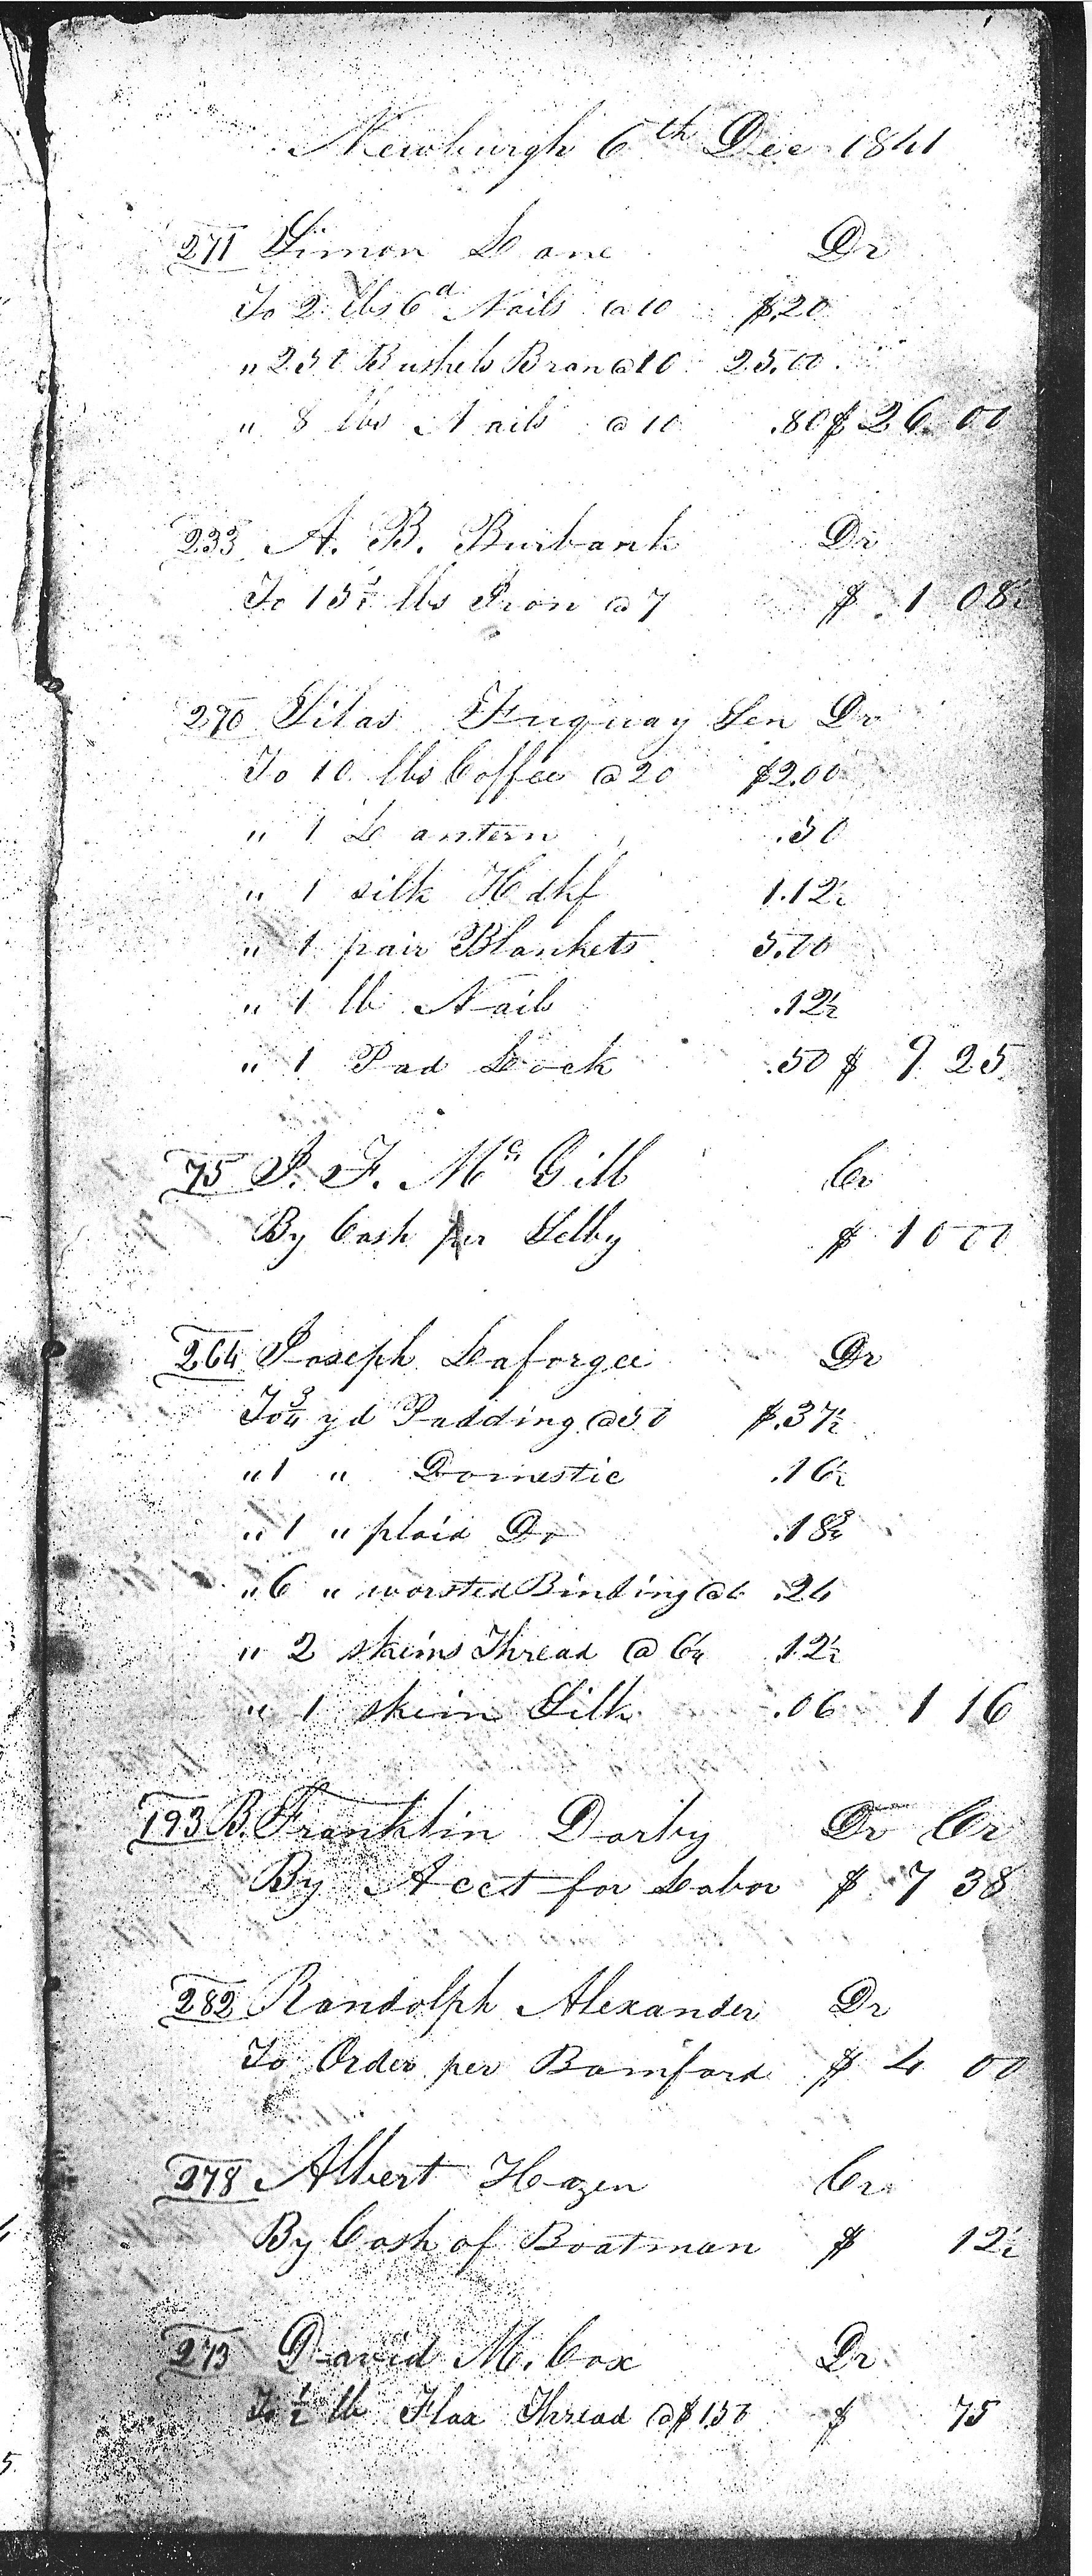 Newburgh 6th Dec 1841
271 Simon Lane Dr
To 2 lbs 6d Nails @ 10 $.20
" 250 Bushels Bran @ 10 25.00
" 8 lbs Nails @ 10 .80 $ 26 00
233 A. B. Burbank Dr
To 15½ lbs Iron @ 7 $ 1 08½
270 Silas Fuquay Sen Dr
To 10 lbs Coffee @ 20 $2.00
" 1 Lantern .50
" 1 silk Hdkf 1.12½
" 1 pair Blankets 5.00
" 1 lb Nails .12½
" 1 Pad Lock .50 $ 9 25
75 J. F. McGill Cr
By Cash per Selby $ 10 00
264 Joseph Laforgee Dr
To ¾ yd Padding @ 50 $.37½
" 1 " Domestic .16½
" 1 " plaid Do .18¾
" 6 " worsted Binding @ 4 .24
" 2 skeins Thread @ 6¼ .12½
" 1 skein Silk .06 1 16
193 B. Franklin Darby Dr Cr
By Acct for Labor $ 7 38
282 Randolph Alexander Dr
To Order per Bamford $ 4 00
278 Albert Hazen Cr
By Cash of Boatman $ 12½
273 David M. Cox Dr
To ½ lb Flax Thread @ $1.50 $ 75
5